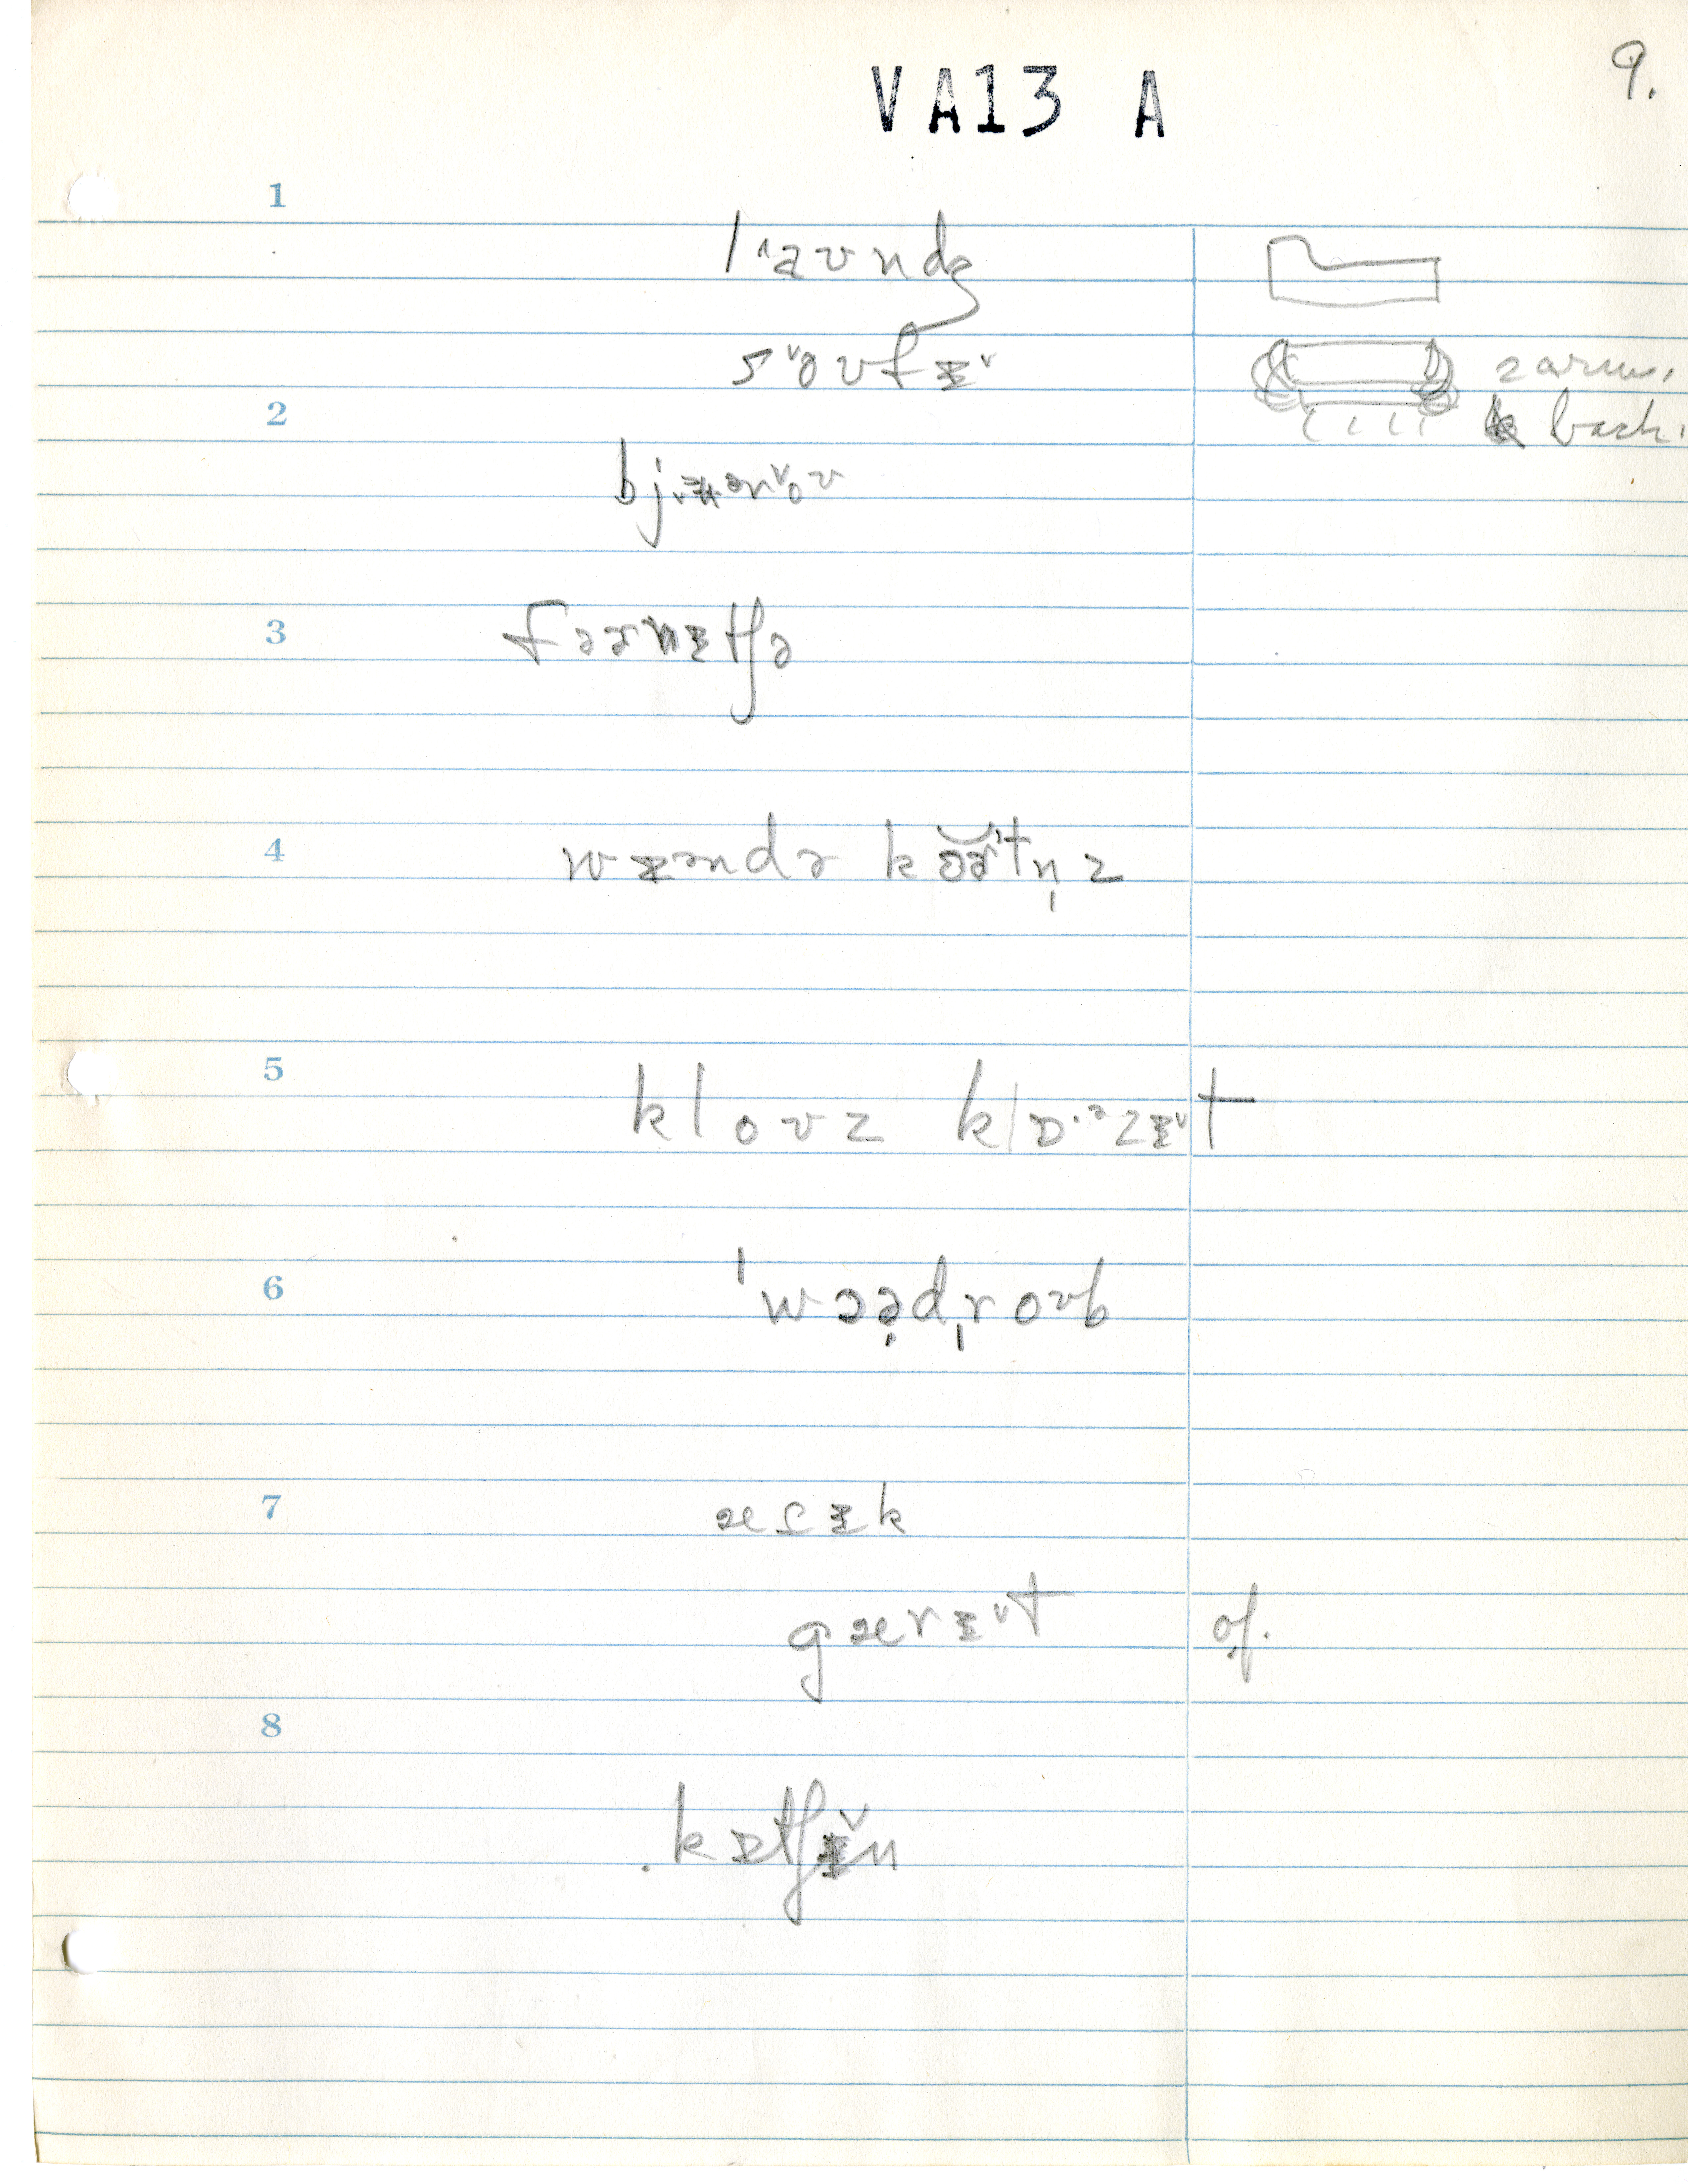 VA13 A
9.
1
l˄aʊndʒ
s˅oʊfɪ˅
2 arms,
2
back.
bjɪʉən˅oʊ
3
fəɚnɪtʃɚ
4
wɪəndɚ kɔ̆ɚ̆tn̩z
5
kloʊz klɒ·ᵊzɪ˅t
6
ˈwɔə̣dˌroʊb
7
æɾɪk
gærɪ˅t
of.
8
kɪtʃɪ̆n